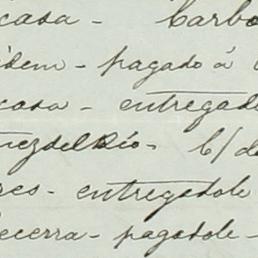 casa - Carbo
idem - pagado á
casa - entregad
nezdelRio - C/ de
res - entregadole
ecerra - pagadole -